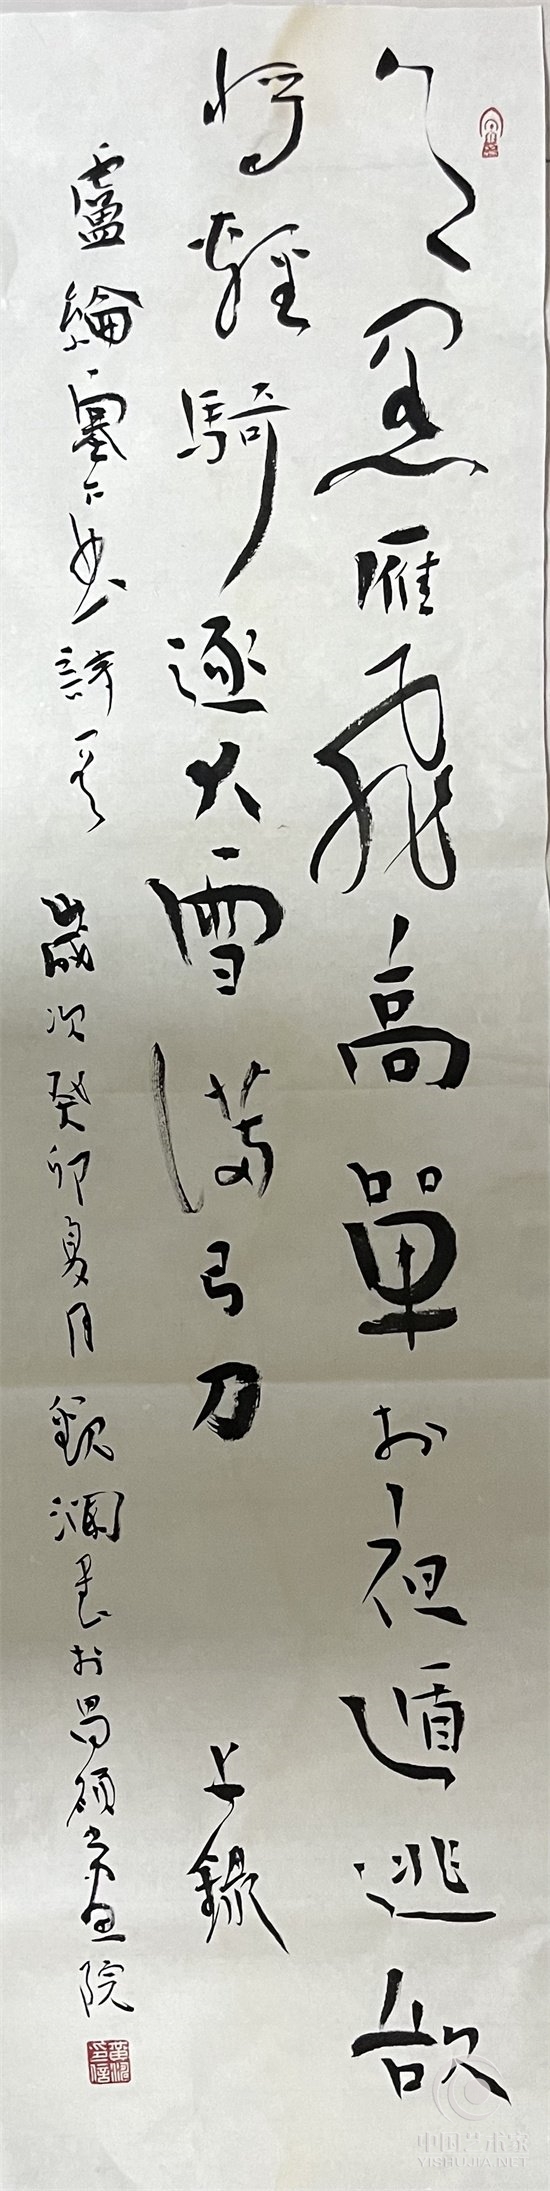 月黑雁飛高單於夜遁逃欲
將輕騎逐大雪滿弓刀 上錄
盧綸塞下曲詩一首 歲次癸卯夏月觀瀾書於昌碩書畫院
中国艺术家
YISHUJIA.NET